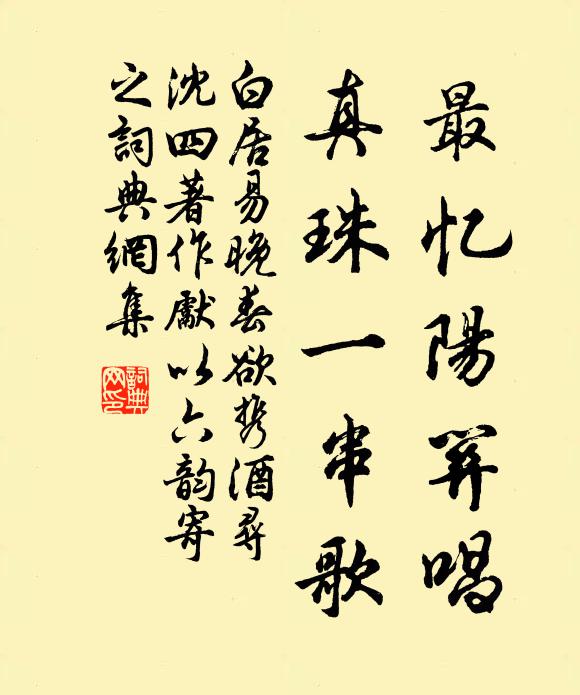 最忆陽関唱
真珠一串歌
白居易晚春欲携酒尋
沈四著作獻以六韵寄
之詞典網集
詞典
网印